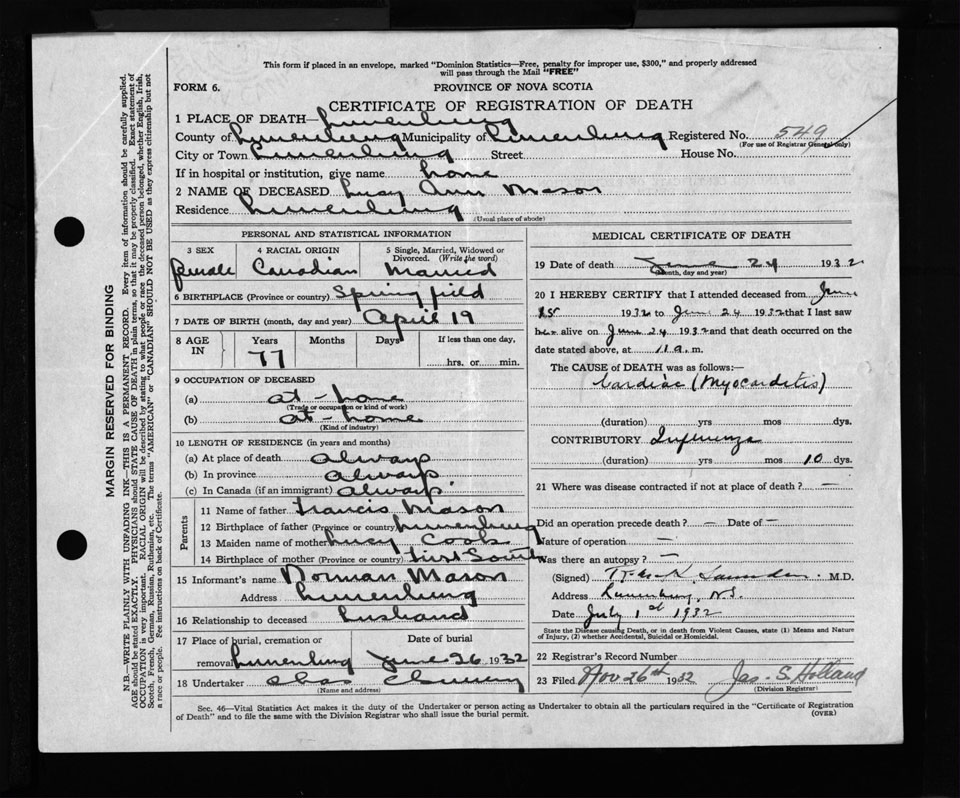 This form if placed in an envelope, marked "Dominion Statistics—Free, penalty for improper use, $300," and properly addressed
will pass through the Mail "FREE"
FORM 6.
PROVINCE OF NOVA SCOTIA
CERTIFICATE OF REGISTRATION OF DEATH
1 PLACE OF DEATH— Lunenburg
County of Lunenburg Municipality of Lunenburg Registered No. 549
(For use of Registrar General only)
City or Town Lunenburg Street House No.
If in hospital or institution, give name home
2 NAME OF DECEASED Lucy Ann Mason
Residence Lunenburg
(Usual place of abode)
PERSONAL AND STATISTICAL INFORMATION
3 SEX 4 RACIAL ORIGIN 5 Single, Married, Widowed or
Divorced. (Write the word)
Female Canadian Married
6 BIRTHPLACE (Province or country) Springfield
7 DATE OF BIRTH (month, day and year) April 19
8 AGE IN Years Months Days If less than one day,
77 hrs. or min.
9 OCCUPATION OF DECEASED
(a) at-home
(Trade or occupation or kind of work)
(b) at-home
(Kind of industry)
10 LENGTH OF RESIDENCE (in years and months)
(a) At place of death always
(b) In province always
(c) In Canada (if an immigrant) always
Parents
11 Name of father Francis Mason
12 Birthplace of father (Province or country) Lunenburg
13 Maiden name of mother Lucy Cook
14 Birthplace of mother (Province or country) First South
15 Informant's name Norman Mason
Address Lunenburg
16 Relationship to deceased husband
17 Place of burial, cremation or Date of burial
removal Lunenburg June 26 1932
18 Undertaker Chas
(Name and address)
MEDICAL CERTIFICATE OF DEATH
19 Date of death June 24 1932
(Month, day and year)
20 I HEREBY CERTIFY that I attended deceased from June
1932 to June 24 1932 that I last saw
her alive on June 24 1932 and that death occurred on
date stated above, at 11 a. m.
The CAUSE of DEATH was as follows:—
Cardiac (Myocarditis)
(duration) yrs mos dys.
CONTRIBUTORY Influenza
(duration) yrs mos 10 dys.
21 Where was disease contracted if not at place of death? —
Did an operation precede death? — Date of —
Nature of operation —
Was there an autopsy? —
(Signed) Saunders M.D.
Address Lunenburg, N.S.
Date July 1st 1932
State the Disease causing Death, or in death from Violent Causes, state (1) Means and Nature
of Injury, (2) whether Accidental, Suicidal or Homicidal.
22 Registrar's Record Number
23 Filed Nov 26th 1932 Jas. S. Holland
(Division Registrar)
Sec. 46—Vital Statistics Act makes it the duty of the Undertaker or person acting as Undertaker to obtain all the particulars required in the "Certificate of Registration
of Death" and to file the same with the Division Registrar who shall issue the burial permit.
(OVER)
MARGIN RESERVED FOR BINDING
N.B.—WRITE PLAINLY WITH UNFADING INK—THIS IS A PERMANENT RECORD. Every item of information should be carefully supplied.
AGE should be stated EXACTLY. PHYSICIANS should STATE CAUSE OF DEATH in plain terms, so that it may be properly classified. Exact statement of
OCCUPATION is very important. RACIAL ORIGIN will be described by stating to what people or race the deceased person belonged, whether English, Irish,
Scotch, French, German, Russian, Ruthenian, etc. The terms "AMERICAN" or "CANADIAN" SHOULD NOT BE USED as they express citizenship but not
a race or people. See instructions on back of Certificate.